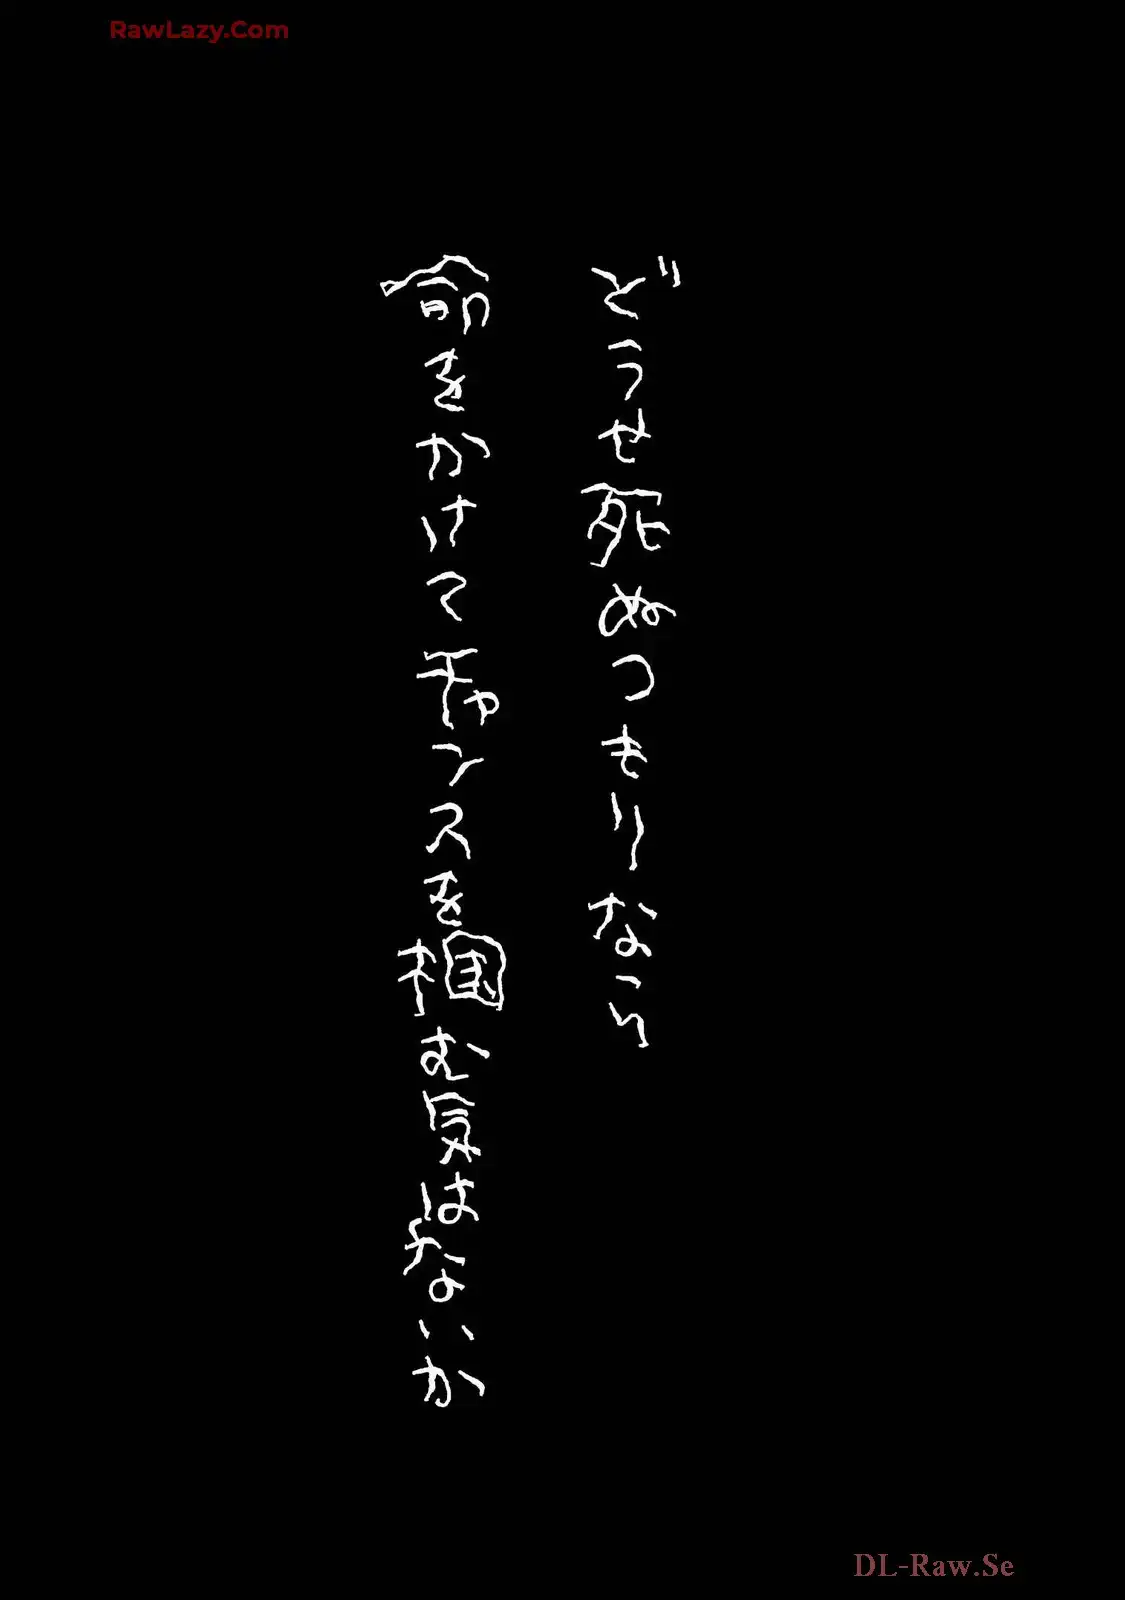 RawLazy.Com
どうせ死ぬつもりなら
命をかけてチャンスを掴む気はないか
DL-Raw.Se